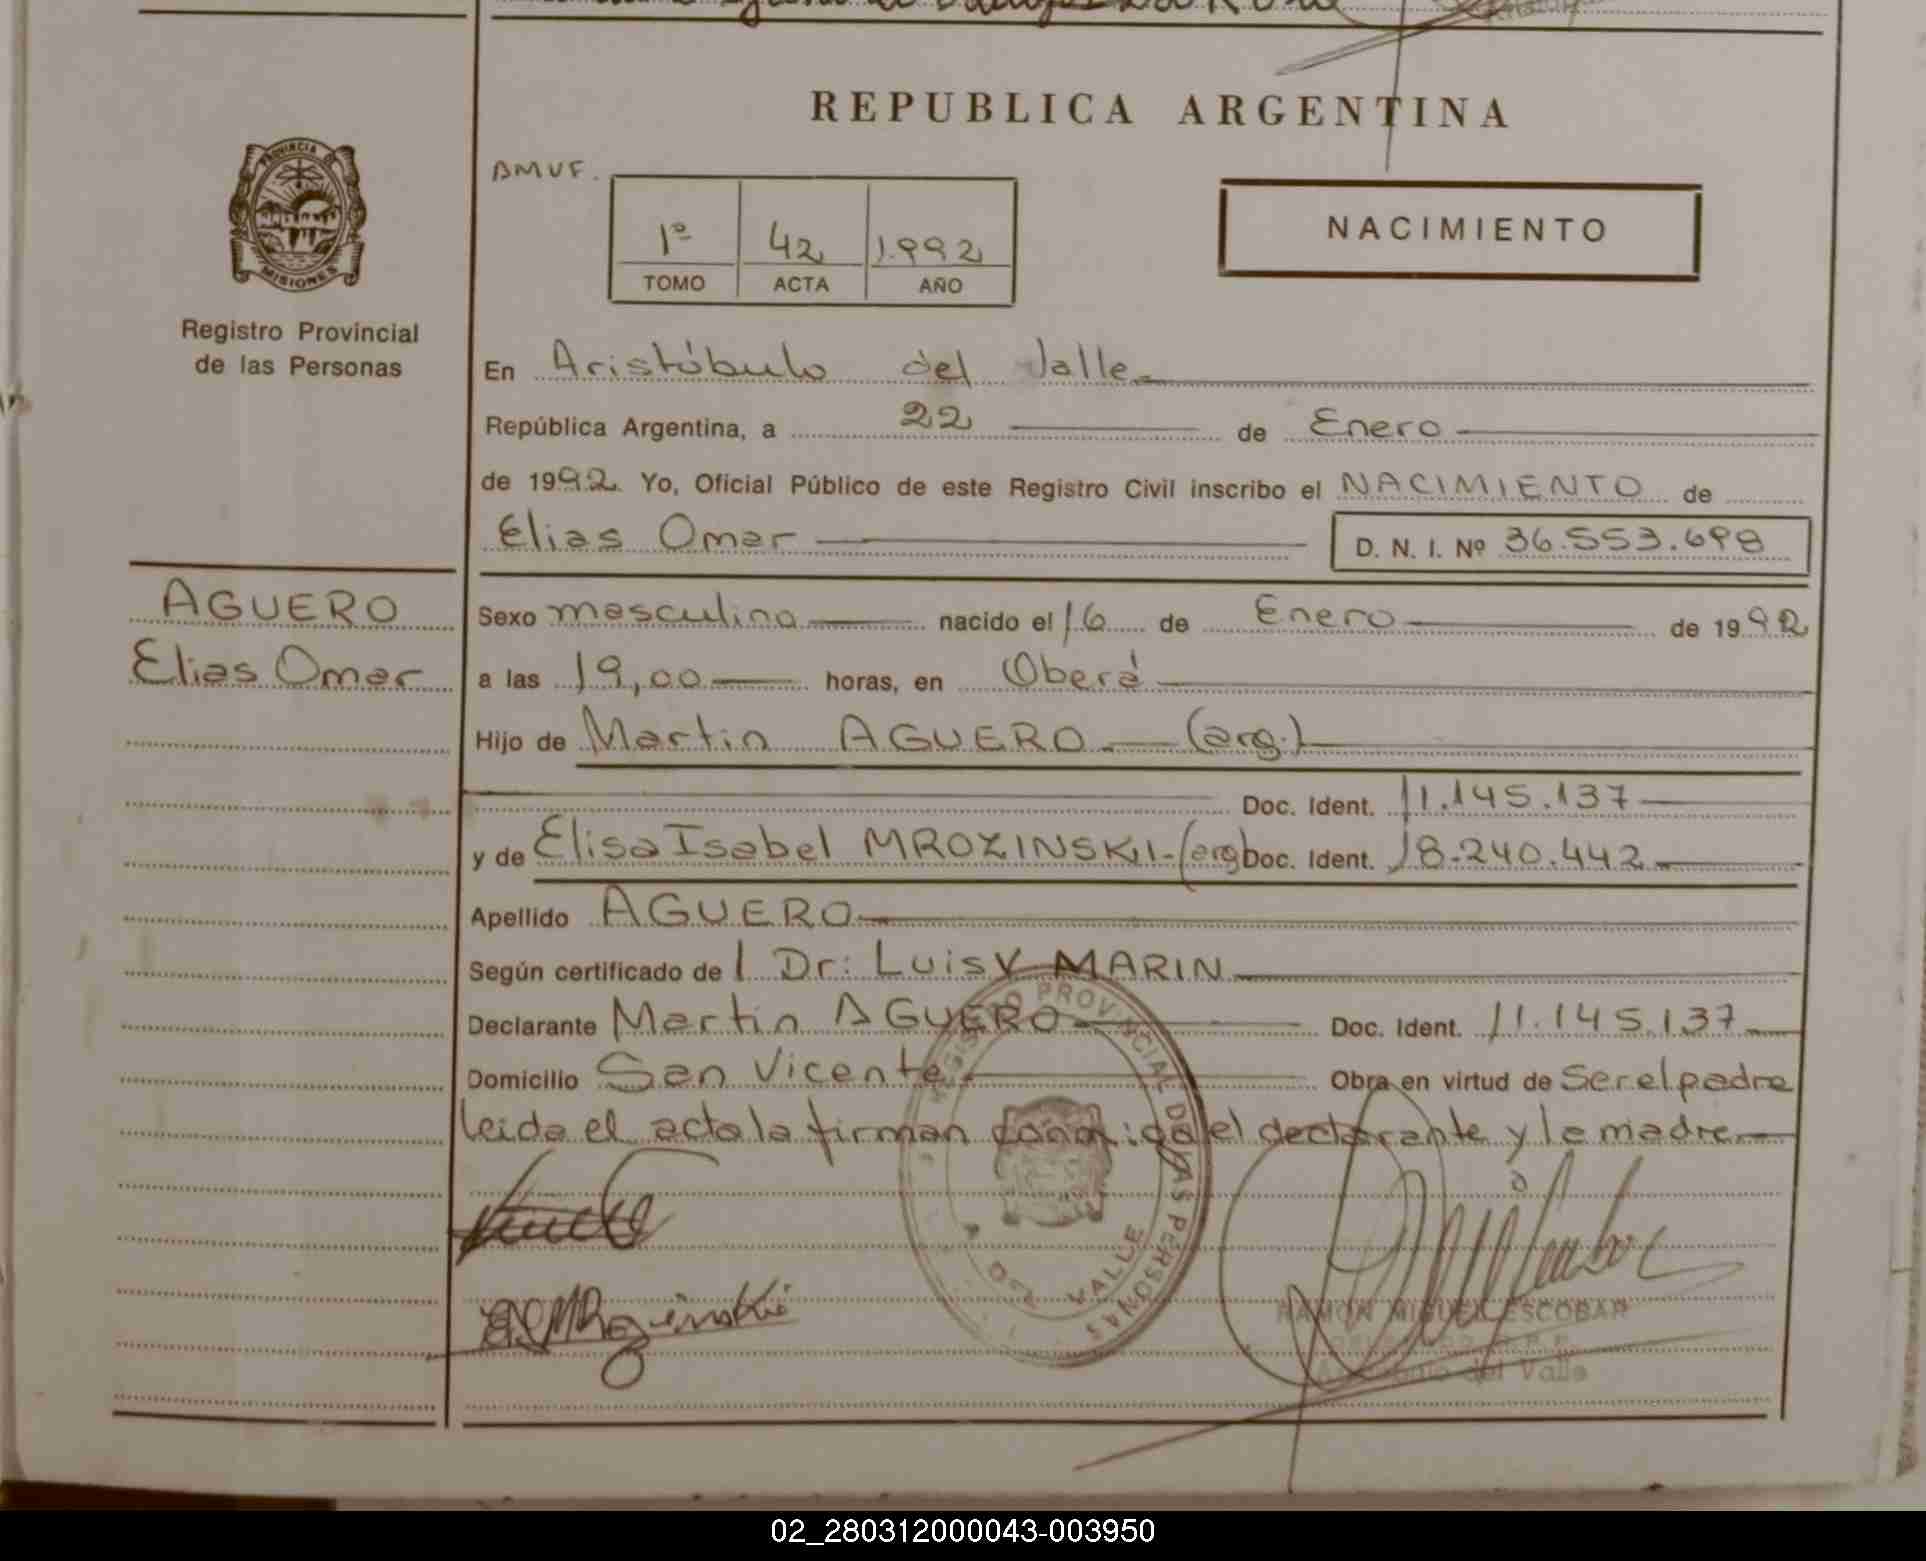 REPUBLICA ARGENTINA
PROVINCIA DE
MISIONES
Registro Provincial
de las Personas
BMVF.
1º 42 1.992
TOMO ACTA AÑO
NACIMIENTO
En Aristóbulo del Valle
República Argentina, a 22 de Enero
de 1992 Yo, Oficial Público de este Registro Civil inscribo el NACIMIENTO de
Elias Omar D. N. I. Nº 36.553.698
AGUERO
Elias Omar
Sexo masculino nacido el 16 de Enero de 1992
a las 19,00 horas, en Oberá
Hijo de Martin AGUERO (arg.)
Doc. Ident. 11.145.137
y de Elisa Isabel MROZINSKII-(arg Doc. Ident. 18.240.442
Apellido AGUERO
Según certificado de l Dr: Luis V MARIN
Declarante Martin AGUERO Doc. Ident. 11.145.137
Domicilio San Vicente Obra en virtud de Ser el padre
leida el acta la firman conmigo el declarante y la madre
REGISTRO PROVINCIAL DE LAS PERSONAS
DEL VALLE
RAMON MIGUEL ESCOBAR
del Valle
02_280312000043-003950